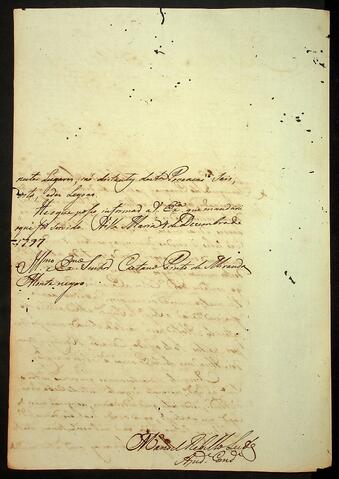 nestes Lugares, não distantes desta Povoação Seis,
oito, e des Legoas
He o que posso informar a V. Exª que mandará
o que for Servido. Vila Maria 4 de Dezembro de
1797
Illmo e Exmo Senhor Caetano Pinto de Miranda
Montenegro
Manoel Rebello